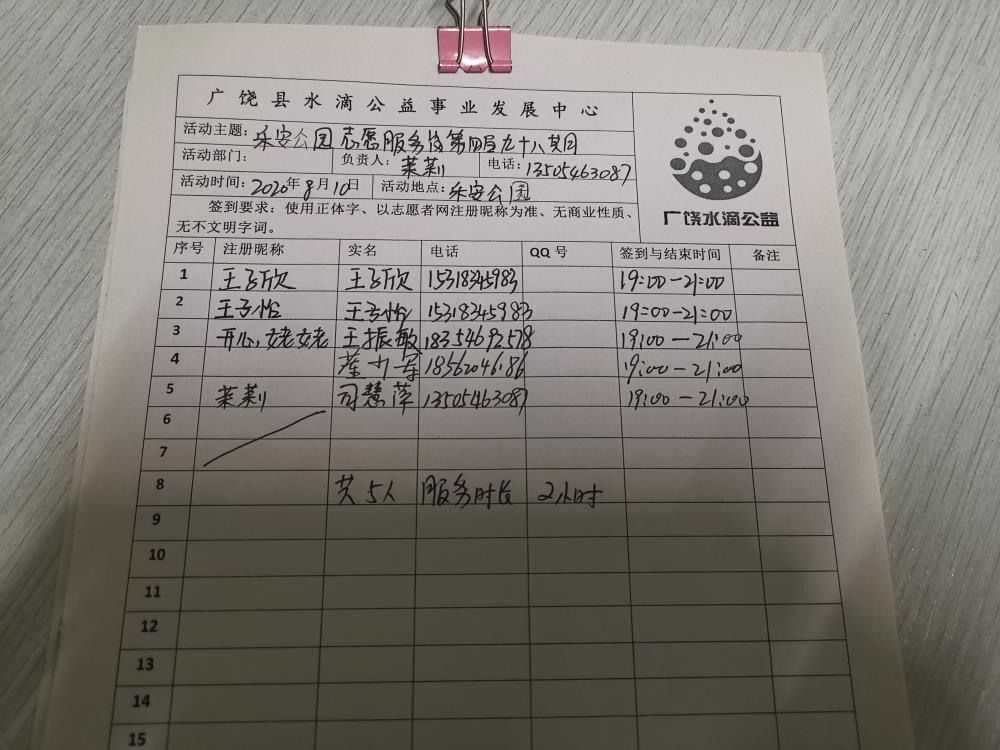 广饶县水滴公益事业发展中心
活动主题：乐安公园志愿服务岗第四届九十八期
活动部门： 负责人：茉莉 电话：13505463087
活动时间：2020年8月10日 活动地点：乐安公园
签到要求：使用正体字、以志愿者网注册昵称为准、无商业性质、
无不文明字词。
广饶水滴公益
序号 注册昵称 实名 电话 QQ号 签到与结束时间 备注
1 王子欣 王子欣 15318345983 19:00-21:00
2 王子怡 王子怡 15318345983 19:00-21:00
3 开心姥姥 王振敏 18354692578 19:00-21:00
4 18562046186 19:00-21:00
5 茉莉 司慧萍 13505463087 19:00-21:00
6
7
8 共5人 服务时长 2小时
9
10
11
12
13
14
15